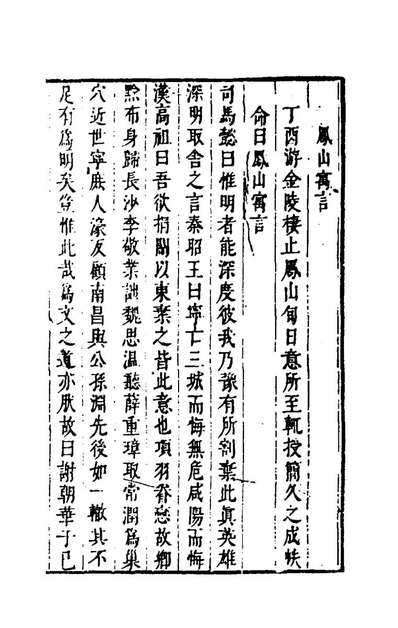 鳳山寓言
丁酉游金陵棲止鳳山旬日意所至輒授簡久之成帙
命曰鳳山寓言
司馬懿曰惟明者能深度彼我乃豫有所割棄此真英雄
深明取舍之言秦昭王曰寧亡三城而悔無危咸陽而悔
漢高祖曰吾欲捐關以東棄之皆此意也項羽眷戀故鄉
黥布身歸長沙李敬業詘魏思溫聽薛重璋取常潤為巢
穴近世寧庶人濠反顧南昌與公孫淵先後如一轍其不
足有為明矣豈惟此哉為文之道亦肰故曰謝朝華于已